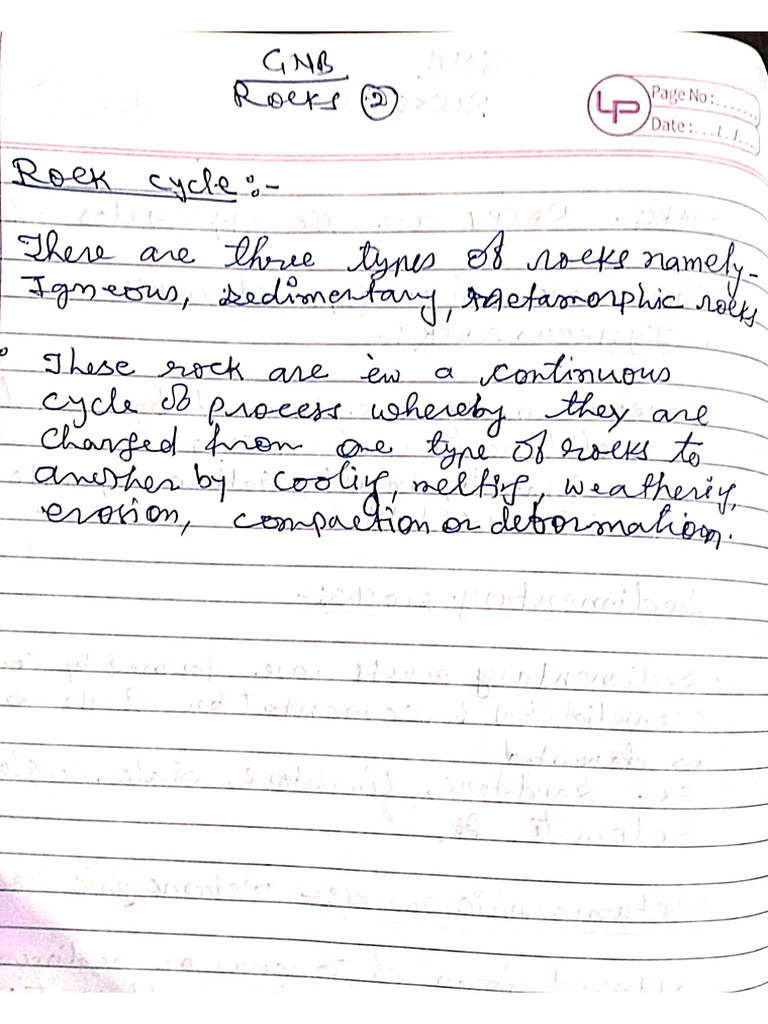 GNB
Rocks 2
LP
Page No:.......
Date:...L.J...
Rock cycle:-
There are three types of rocks namely-
Igneous, sedimentary, metamorphic rocks
These rock are in a continuous
cycle of process whereby they are
changed from one type of rocks to
another by cooling, melting, weathering,
erosion, compaction or deformation.